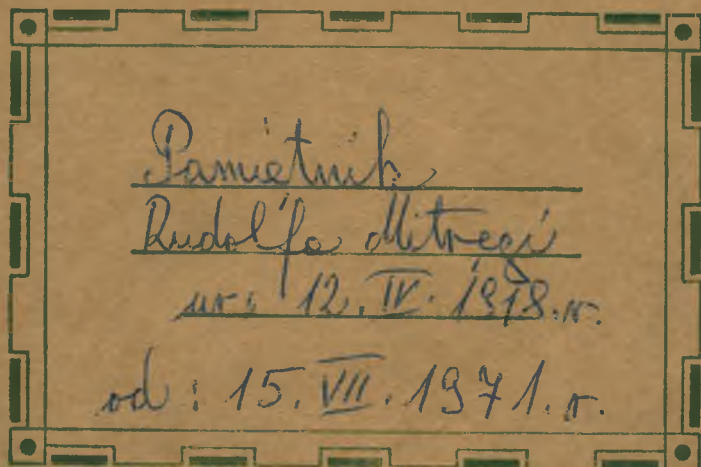 Pamiętnik
Rudolfa Mitręgi
ur: 12. IV. 1918.r.
od: 15. VII. 1971.r.